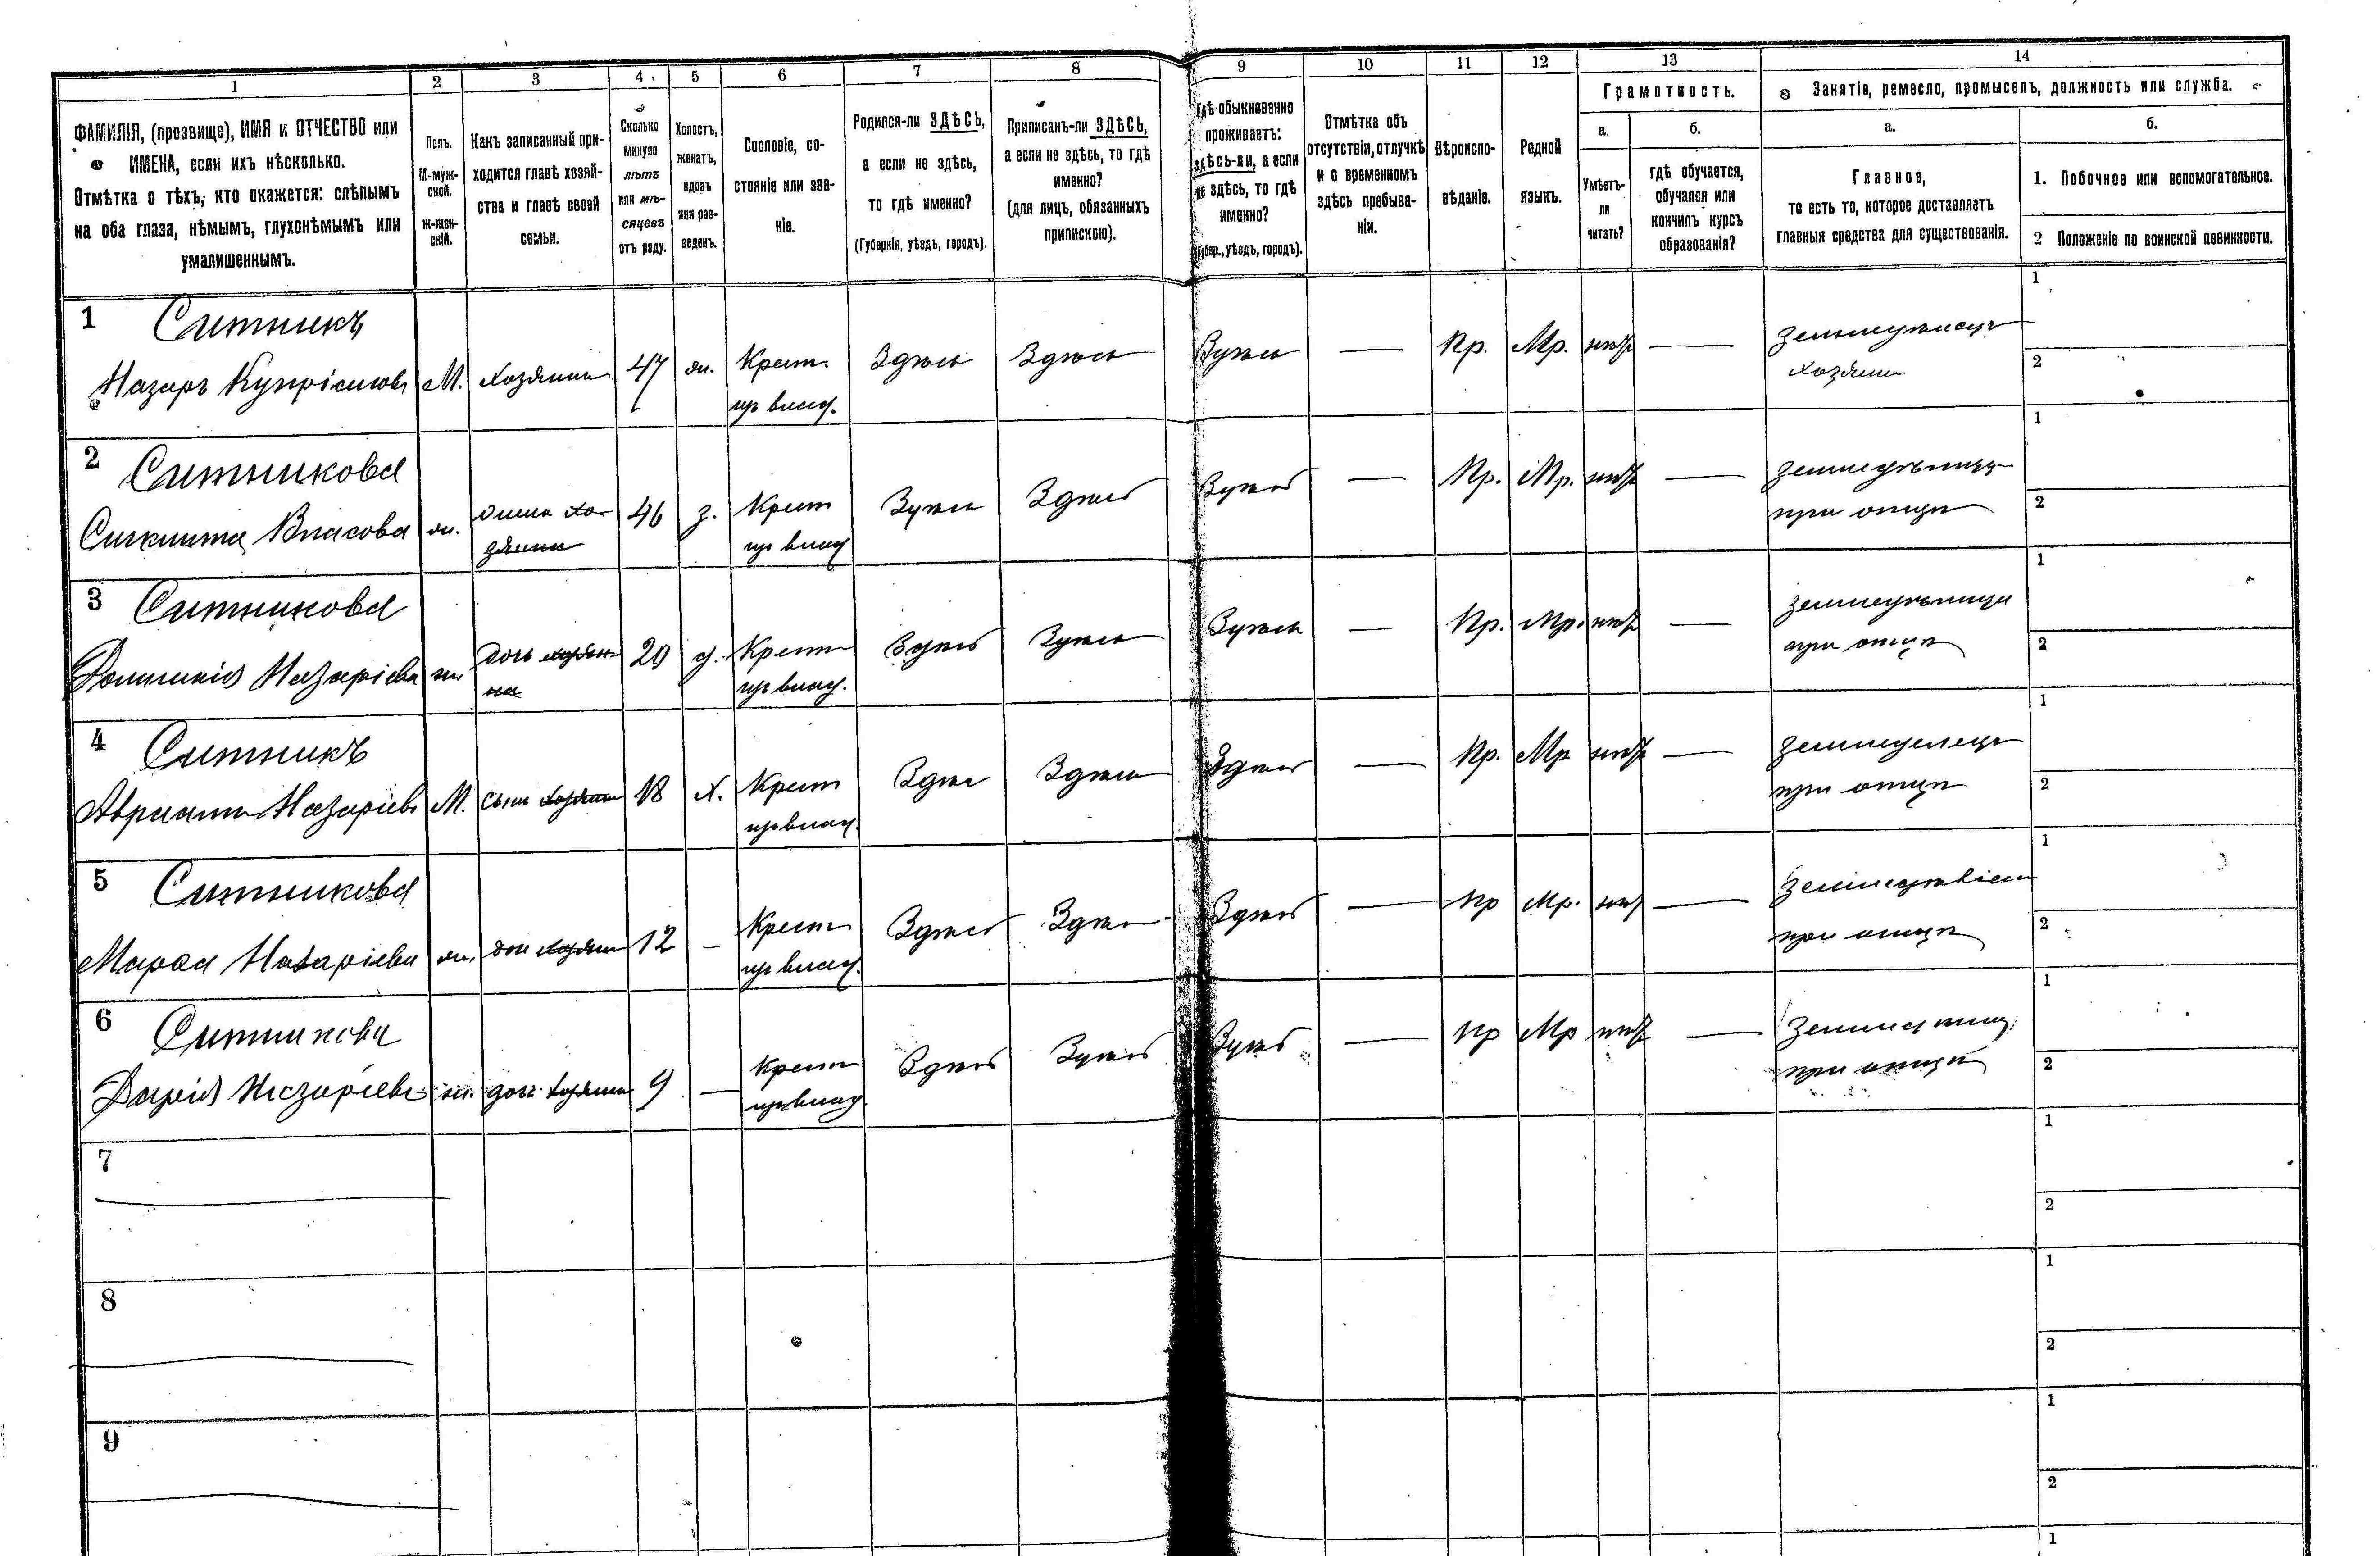 1
2
3
4
5
6
7
8
9
10
11
12
13
14
ФАМИЛІЯ, (прозвище), ИМЯ и ОТЧЕСТВО или
ИМЕНА, если ихъ нѣсколько.
Отмѣтка о тѣхъ, кто окажется: слѣпымъ
на оба глаза, нѣмымъ, глухонѣмымъ или
умалишеннымъ.
Полъ.
М-муж-
ской.
Ж-жен-
скій.
Какъ записанный при-
ходится главѣ хозяй-
ства и главѣ своей
семьи.
Сколько
минуло
лѣтъ
или мѣ-
сяцевъ
отъ роду.
Холостъ,
женатъ,
вдовъ
или раз-
веденъ.
Сословіе, со-
стояніе или зва-
ніе.
Родился-ли ЗДѢСЬ,
а если не здѣсь,
то гдѣ именно?
(Губернія, уѣздъ, городъ).
Приписанъ-ли ЗДѢСЬ,
а если не здѣсь, то гдѣ
именно?
(для лицъ, обязанныхъ
припискою).
Гдѣ обыкновенно
проживаетъ:
здѣсь-ли, а если
не здѣсь, то гдѣ
именно?
(Губер., уѣздъ, городъ).
Отмѣтка объ
отсутствіи, отлучкѣ
и о временномъ
здѣсь пребыва-
ніи.
Вѣроиспо-
вѣданіе.
Родной
языкъ.
Грамотность.
а.
Умѣетъ-
ли
читать?
б.
гдѣ обучается,
обучался или
кончилъ курсъ
образованія?
Занятіе, ремесло, промыселъ, должность или служба.
а.
Главное,
то есть то, которое доставляетъ
главныя средства для существованія.
б.
1. Побочное или вспомогательное.
2 Положеніе по воинской повинности.
1 Ситникъ
Назаръ Купріяновъ М. Хозяинъ 47 ж. Крест. Здѣсь Здѣсь Здѣсь — Пр. Мр. нѣтъ — земледѣлецъ
из влад. хозяинъ
1
2
2 Ситникова
Власова ж. жена хо- 46 з. Крест Здѣсь Здѣсь Здѣсь — Пр. Мр. нѣтъ —
зяина из влад
1
2
3 Ситникова
Назаріева ж. дочь хозяи- 20 д. Крест Здѣсь Здѣсь Здѣсь — Пр. Мр. нѣтъ — земледѣлица
на из влад. при отцѣ
1
2
4 Ситникъ
Авраамъ Назаріевъ М. сынъ хозяина 18 х. Крест Здѣсь Здѣсь Здѣсь — Пр. Мр нѣтъ — земледелецъ
из влад. при отцѣ
1
2
5 Ситникова
Марѳа Назаріева ж. доч хозяин 12 — Крест Здѣсь Здѣсь Здѣсь — Пр Мр. нѣтъ —
из влад. при отцѣ
1
2
6 Ситникова
Дарія Назаріева ж. доч хозяина 9 — Крест Здѣсь Здѣсь Здѣсь — Пр Мр нѣтъ —
из влад при отцѣ
1
2
7
1
2
8
1
2
9
1
2
1